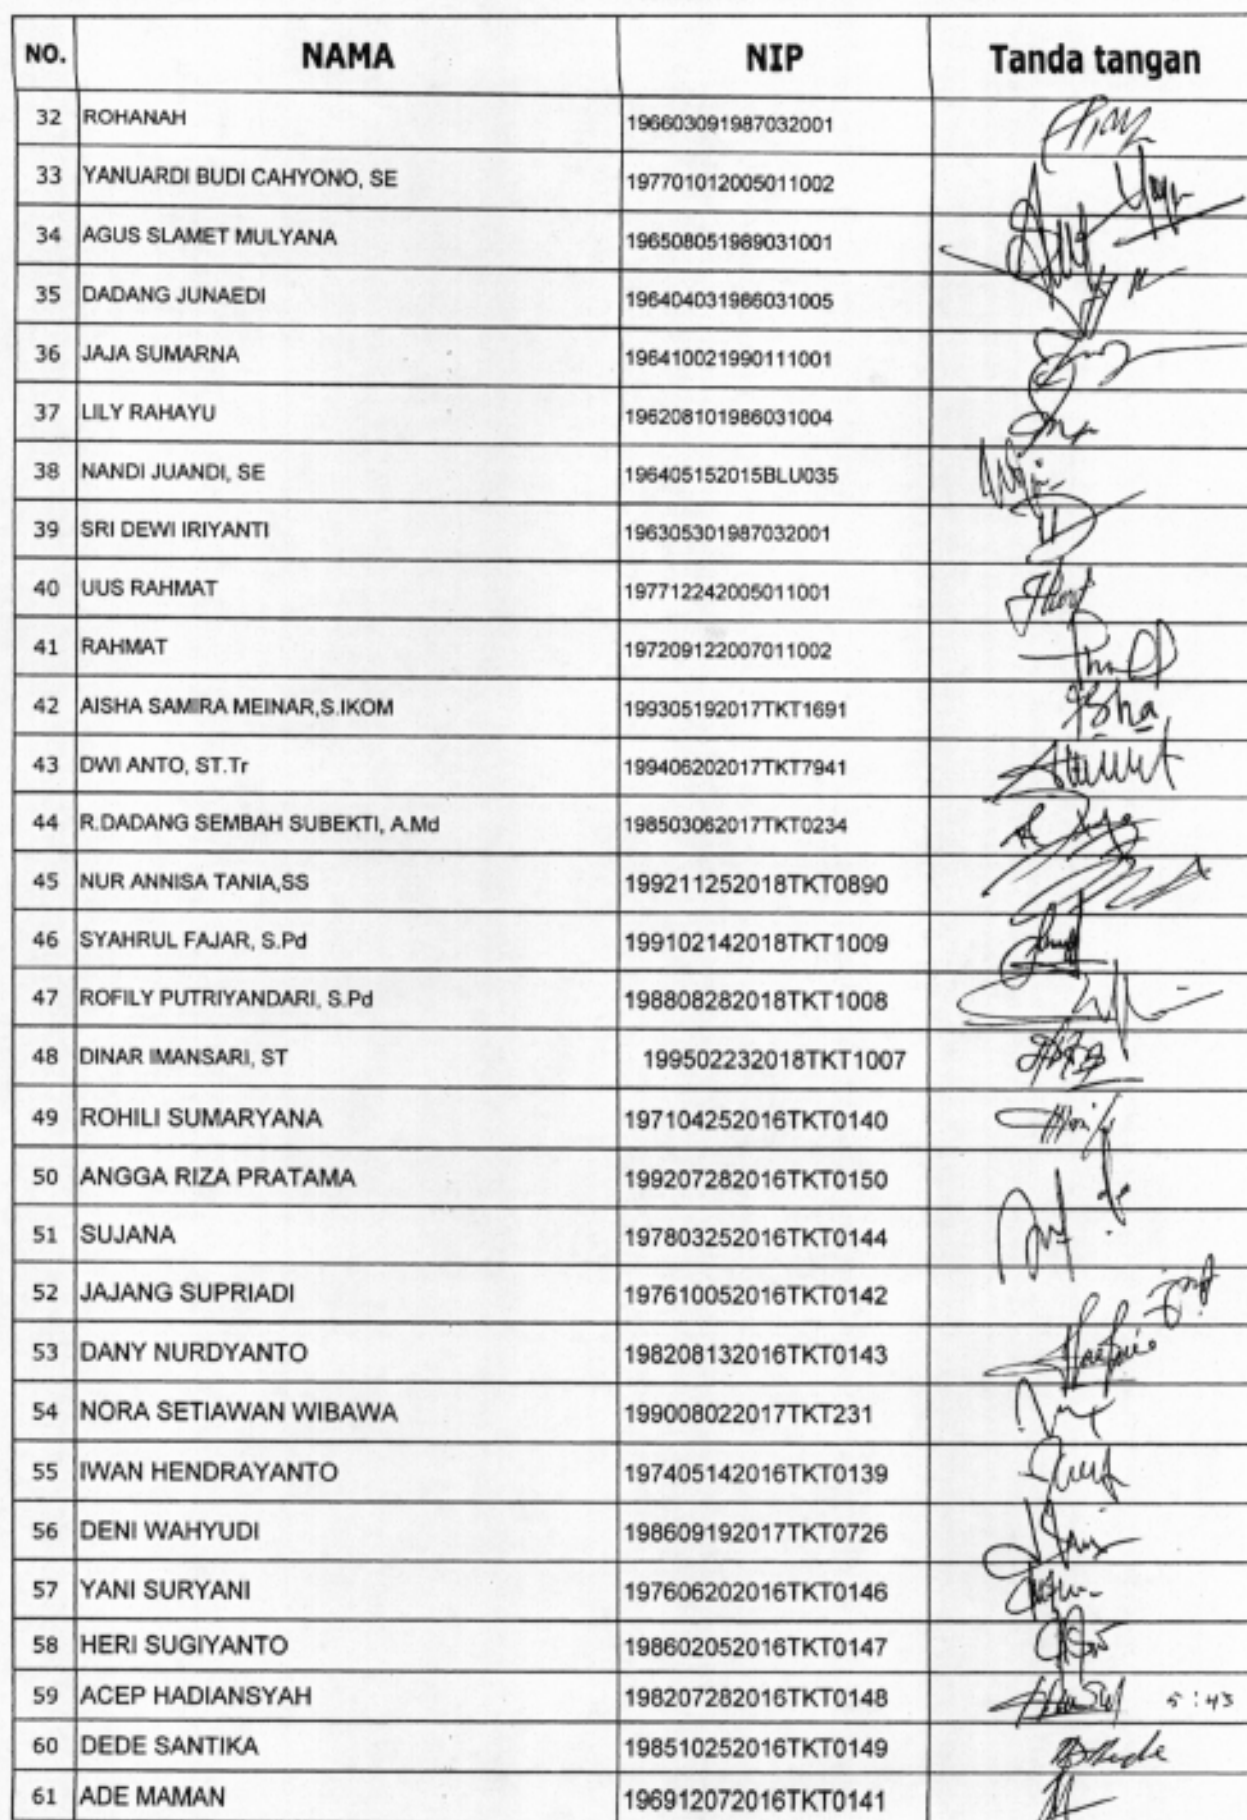 NO. NAMA NIP Tanda tangan
32 ROHANAH 196603091987032001
33 YANUARDI BUDI CAHYONO, SE 197701012005011002
34 AGUS SLAMET MULYANA 196508051989031001
35 DADANG JUNAEDI 196404031986031005
36 JAJA SUMARNA 196410021990111001
37 LILY RAHAYU 196208101986031004
38 NANDI JUANDI, SE 196405152015BLU035
39 SRI DEWI IRIYANTI 196305301987032001
40 UUS RAHMAT 197712242005011001
41 RAHMAT 197209122007011002
42 AISHA SAMIRA MEINAR,S.IKOM 199305192017TKT1691
43 DWI ANTO, ST.Tr 199406202017TKT7941
44 R.DADANG SEMBAH SUBEKTI, A.Md 198503062017TKT0234
45 NUR ANNISA TANIA,SS 199211252018TKT0890
46 SYAHRUL FAJAR, S.Pd 199102142018TKT1009
47 ROFILY PUTRIYANDARI, S.Pd 198808282018TKT1008
48 DINAR IMANSARI, ST 199502232018TKT1007
49 ROHILI SUMARYANA 197104252016TKT0140
50 ANGGA RIZA PRATAMA 199207282016TKT0150
51 SUJANA 197803252016TKT0144
52 JAJANG SUPRIADI 197610052016TKT0142
53 DANY NURDYANTO 198208132016TKT0143
54 NORA SETIAWAN WIBAWA 199008022017TKT231
55 IWAN HENDRAYANTO 197405142016TKT0139
56 DENI WAHYUDI 198609192017TKT0726
57 YANI SURYANI 197606202016TKT0146
58 HERI SUGIYANTO 198602052016TKT0147
59 ACEP HADIANSYAH 198207282016TKT0148 5:43
60 DEDE SANTIKA 198510252016TKT0149
61 ADE MAMAN 196912072016TKT0141